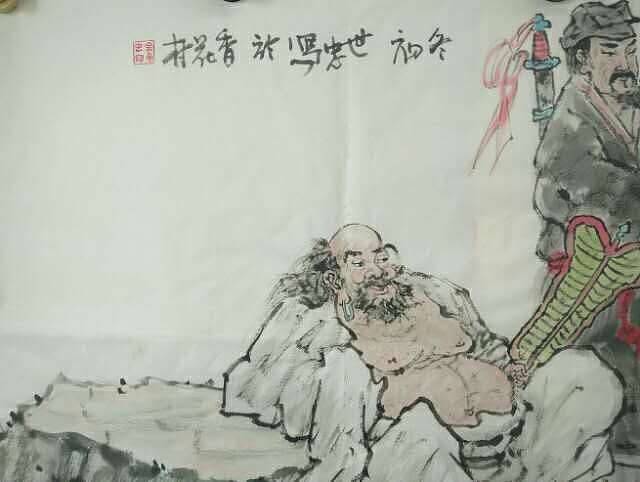 冬初世忠写於香花村